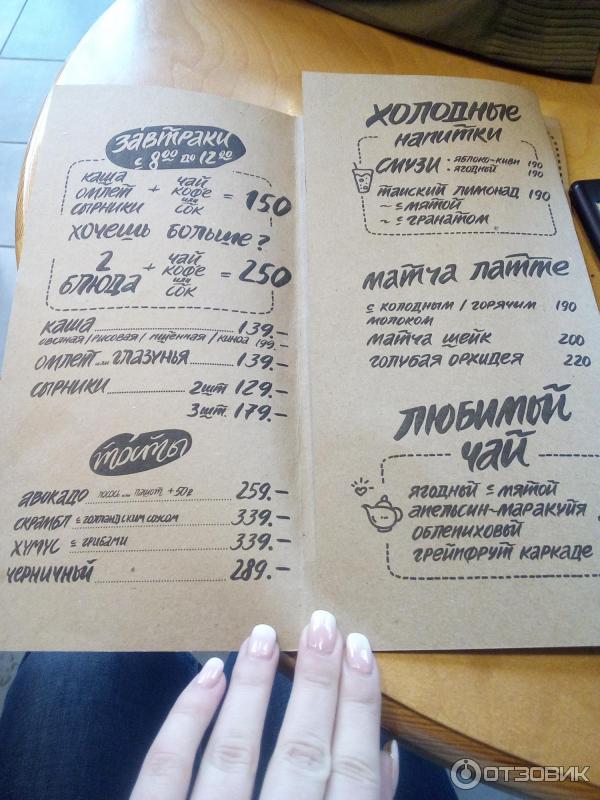 завтраки
с 8 00 до 12 00
каша
омлет
сырники
+
чай
кофе
или
сок
= 150
хочешь больше?
2
блюда
+
чай
кофе
или
сок
= 250
каша 139.-
овсяная/рисовая/пшённая/киноа 199.-
омлет или глазунья 139.-
сырники 2шт 129.-
3шт. 179.-
тосты
авокадо лосось или пашот +50г 259.-
скрамбл с голландским соусом 339.-
хумус с грибами 339.-
черничный 289.-
холодные
напитки
смузи • яблоко-киви 190
• ягодный 190
тайский лимонад 190
~ с мятой
~ с гранатом
матча латте
с холодным / горячим 190
молоком
матча шейк 200
голубая орхидея 220
любимый
чай
ягодный с мятой
апельсин-маракуйя
облепиховый
грейпфрут каркаде
ОТЗОВИК